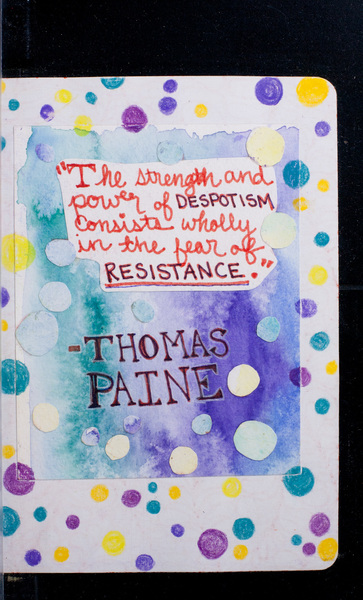 "The strength and
power of DESPOTISM
consists wholly
in the fear of
RESISTANCE."
-THOMAS
PAINE